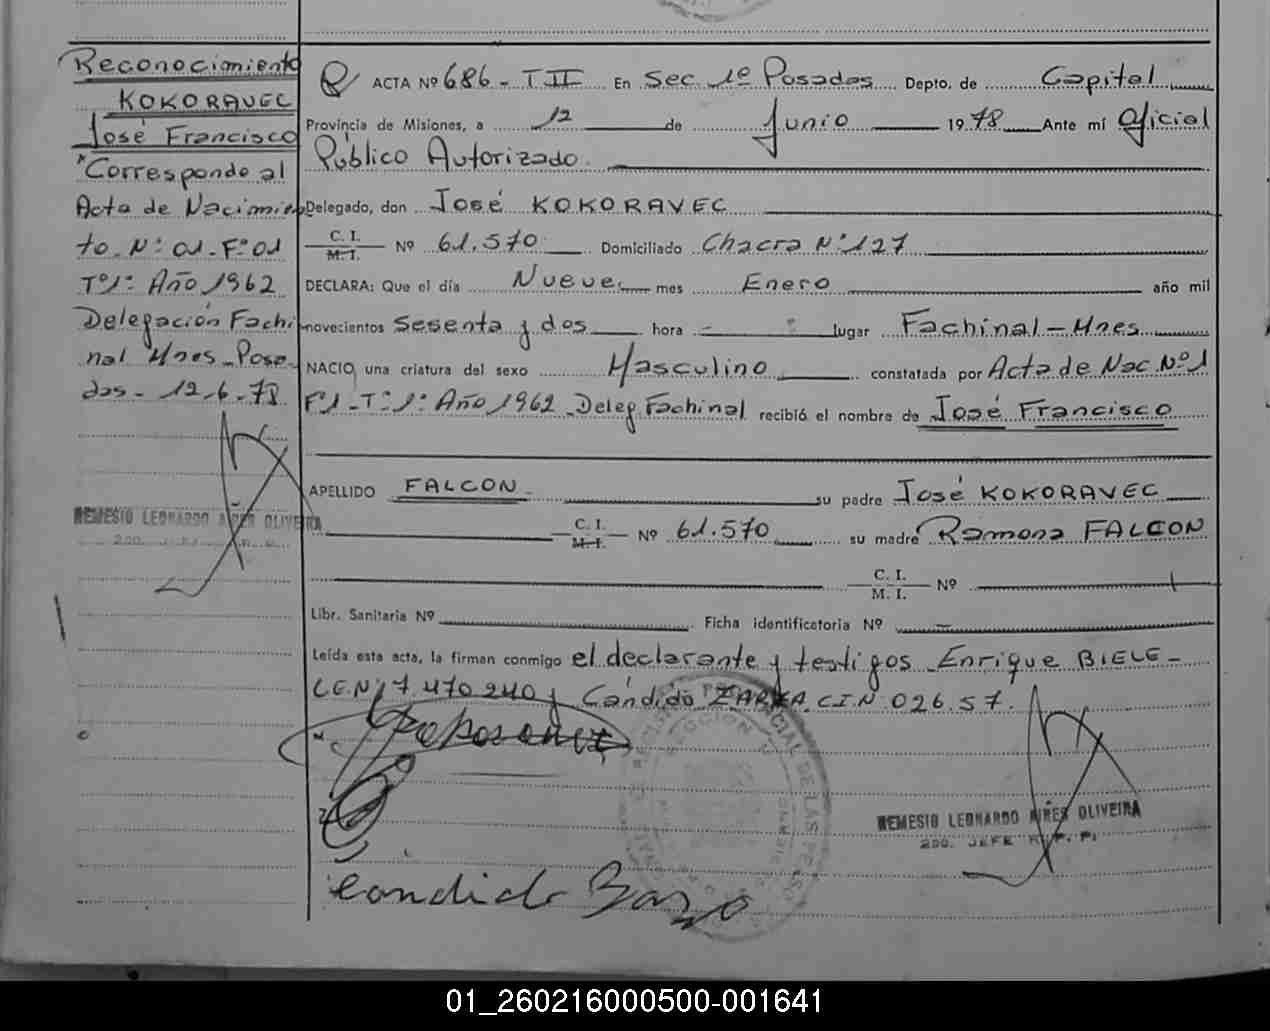 Reconocimiento
KOKORAVEC
José Francisco
"Corresponde al
Acta de Nacimien
to. Nº: 01. Fº: 01
Tº 1º: Año 1962
Delegación Fachi
nal Mnes_Posa_
das_ 12_6_78
REMESIO LEONARDO AIRES OLIVEIRA
ACTA Nº 686 - T II En Sec. 1º Posadas Depto. de Capital
Provincia de Misiones, a 12 de Junio 1978 Ante mí Oficial
Público Autorizado.
Delegado, don José KOKORAVEC
C. I. / M. I. Nº 61.570 Domiciliado Chacra Nº 127
DECLARA: Que el día Nueve mes Enero año mil
novecientos Sesenta y dos hora - lugar Fachinal - Mnes
NACIO, una criatura del sexo Masculino constatada por Acta de Nac. Nº 1
Fº 1 - Tº: 1º: Año 1962 - Deleg Fachinal recibió el nombre de José Francisco
APELLIDO FALCON. su padre José KOKORAVEC
C. I. / M. I. Nº 61.570 su madre Ramona FALCON
C. I. / M. I. Nº
Libr. Sanitaria Nº Ficha identificatoria Nº -
Leída esta acta, la firman conmigo el declarante y testigos Enrique BIELE -
L.E.Nº 7.470 240 y Cándido ZARZA. C.I.Nº 026.57.
REMESIO LEONARDO AIRES OLIVEIRA
2DO. JEFE R. P. P.
01_260216000500-001641